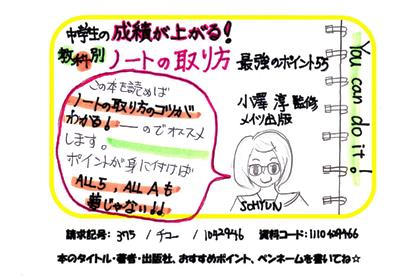 中学生の成績が上がる!
教科別ノートの取り方 最強のポイント55
小澤 淳 監修
メイツ出版
この本を読めば
ノートの取り方のコツが
わかる!―のでオススメ
します。
ポイントが身に付けば
ALL5, ALL Aも
夢じゃない!!
SOHYUN
You can do it!
請求記号: 375 / チュー / 1042946 資料コード:1110429466
本のタイトル・著者・出版社、おすすめポイント、ペンネームを書いてね☆